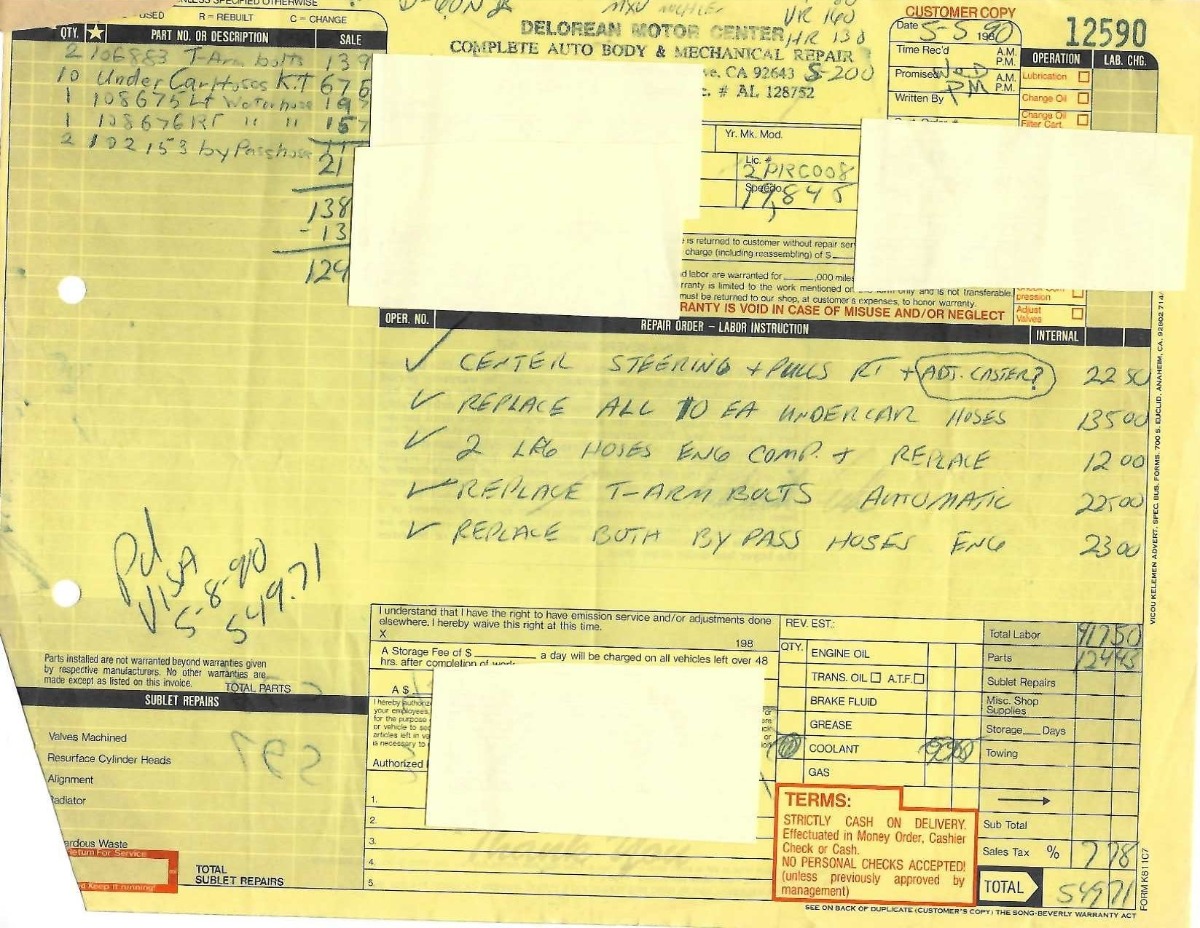 UNLESS SPECIFIED OTHERWISE
USED R = REBUILT C = CHANGE
QTY. PART NO. OR DESCRIPTION SALE
2 106883 T-Arm bolts 139
10 Under Car Hoses KIT 676
1 108675 Lt Waterhose 195
1 108676 RT " " 157
2 102153 by Pass hose
21
138
- 13
124
DELOREAN MOTOR CENTER
COMPLETE AUTO BODY & MECHANICAL REPAIR
ve, CA 92643
c. # AL 128752
VR 160
HR 130
S-200
CUSTOMER COPY
12590
Date 5-5 1990
Time Rec'd A.M. P.M.
Promised WED PM A.M. P.M.
Written By
OPERATION LAB. CHG.
Lubrication
Change Oil
Change Oil Filter Cart.
Yr. Mk. Mod.
Lic. #
2PRC008
Speedo
19,845
is returned to customer without repair ser
charge (including reassembling) of $
d labor are warranted for ,000 miles
rranty is limited to the work mentioned on form only and is not transferable
must be returned to our shop, at customer's expenses, to honor warranty.
RANTY IS VOID IN CASE OF MISUSE AND/OR NEGLECT
pression
Adjust Valves
OPER. NO. REPAIR ORDER – LABOR INSTRUCTION INTERNAL
✓ CENTER STEERING + PULLS RT + ADJ. CASTER? 22 50
✓ REPLACE ALL 10 EA UNDERCAR HOSES 135 00
✓ 2 LRG HOSES ENG COMP. + REPLACE 12 00
✓ REPLACE T-ARM BOLTS AUTOMATIC 225 00
✓ REPLACE BOTH BY PASS HOSES ENG 23 00
Pd
VISA
5-8-90
549.71
Parts installed are not warranted beyond warranties given
by respective manufacturers. No other warranties are
made except as listed on this invoice.
TOTAL PARTS
SUBLET REPAIRS
Valves Machined
Resurface Cylinder Heads
Alignment
Radiator
ardous Waste
Return For Service
Keep it running!
TOTAL
SUBLET REPAIRS
I understand that I have the right to have emission service and/or adjustments done
elsewhere. I hereby waive this right at this time.
X 198
A Storage Fee of $ a day will be charged on all vehicles left over 48
hrs. after completion of work.
A $
I hereby authoriz
your employees
for the purpose
or vehicle to sec
articles left in ve
is necessary to
Authorized
1.
2.
3.
4.
5.
REV. EST.:
QTY.
ENGINE OIL
TRANS. OIL A.T.F.
BRAKE FLUID
GREASE
COOLANT
GAS
TERMS:
STRICTLY CASH ON DELIVERY.
Effectuated in Money Order, Cashier
Check or Cash.
NO PERSONAL CHECKS ACCEPTED!
(unless previously approved by
management)
Total Labor 417 50
Parts 124 43
Sublet Repairs
Misc. Shop Supplies
Storage Days
Towing
Sub Total
Sales Tax % 7 78
TOTAL 549 71
SEE ON BACK OF DUPLICATE (CUSTOMER'S COPY) THE SONG-BEVERLY WARRANTY ACT
FORM K811C7
VICOU KELEMEN ADVERT. SPEC. BUS. FORMS. 700 S. EUCLID. ANAHEIM, CA. 92802 714